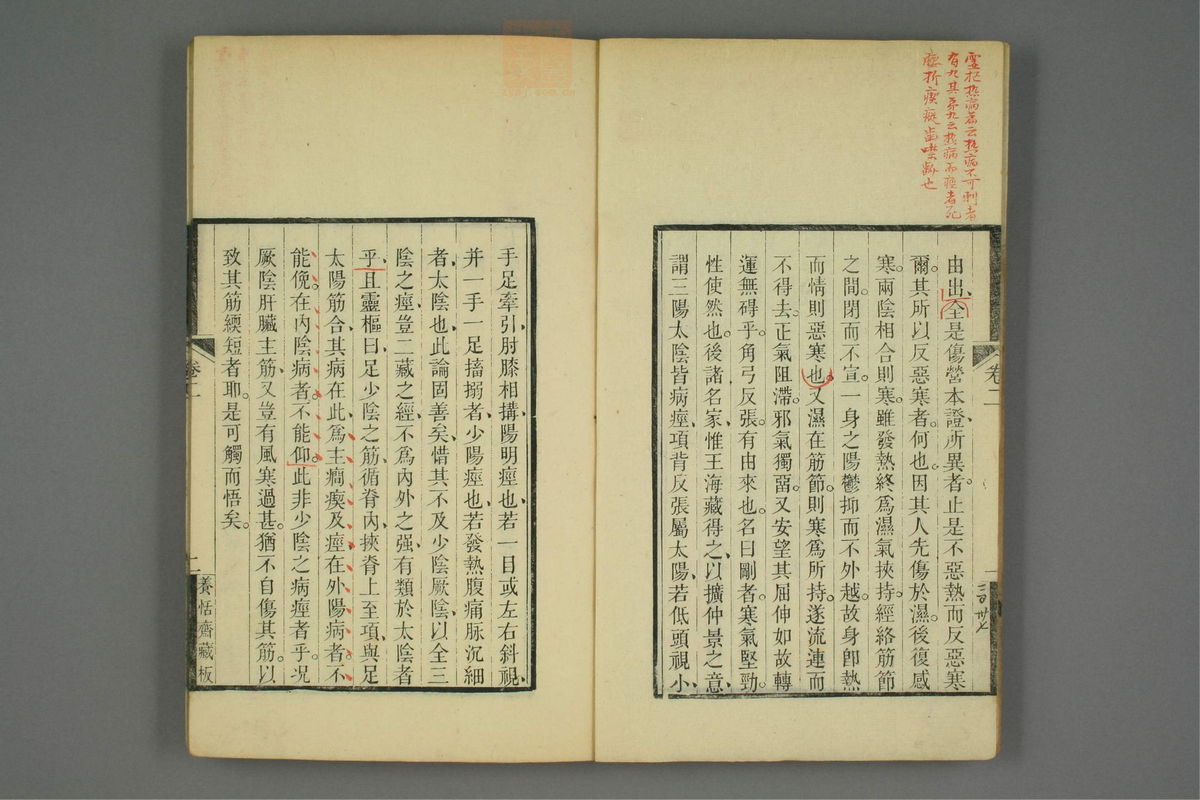 靈枢熱病篇云熱病不可刺者
有九其第九云熱病而痙者死
腰折瘈瘲齒噤齘也
由出全是傷營本證所異者止是不惡熱而反惡寒
爾其所以反惡寒者何也因其人先傷於濕後復感
寒兩陰相合則寒雖發熱終爲濕氣挾持經絡筋節
之間閉而不宣一身之陽鬱抑而不外越故身卽熱
而情則惡寒也又濕在筋節則寒爲所持遂流連而
不得去正氣阻滯邪氣獨畱又安望其屈伸如故轉
運無碍乎角弓反張有由來也名曰剛者寒氣堅勁
性使然也後諸名家惟王海藏得之以擴仲景之意
謂三陽太陰皆病痙項背反張屬太陽若低頭視小
卷二
手足牽引肘膝相搆陽明痙也若一目或左右斜視
并一手一足搐搦者少陽痙也若發熱腹痛脉沉細
者太陰也此論固善矣惜其不及少陰厥陰以全三
陰之痙豈二藏之經不爲內外之强有類於太陰者
乎且靈樞曰足少陰之筋循脊內挾脊上至項與足
太陽筋合其病在此爲主癎瘈及痙在外陽病者不
能俛在內陰病者不能仰此非少陰之病痙者乎况
厥陰肝臟主筋又豈有風寒過甚猶不自傷其筋以
致其筋緛短者耶是可觸而悟矣
卷二
養恬齋藏板